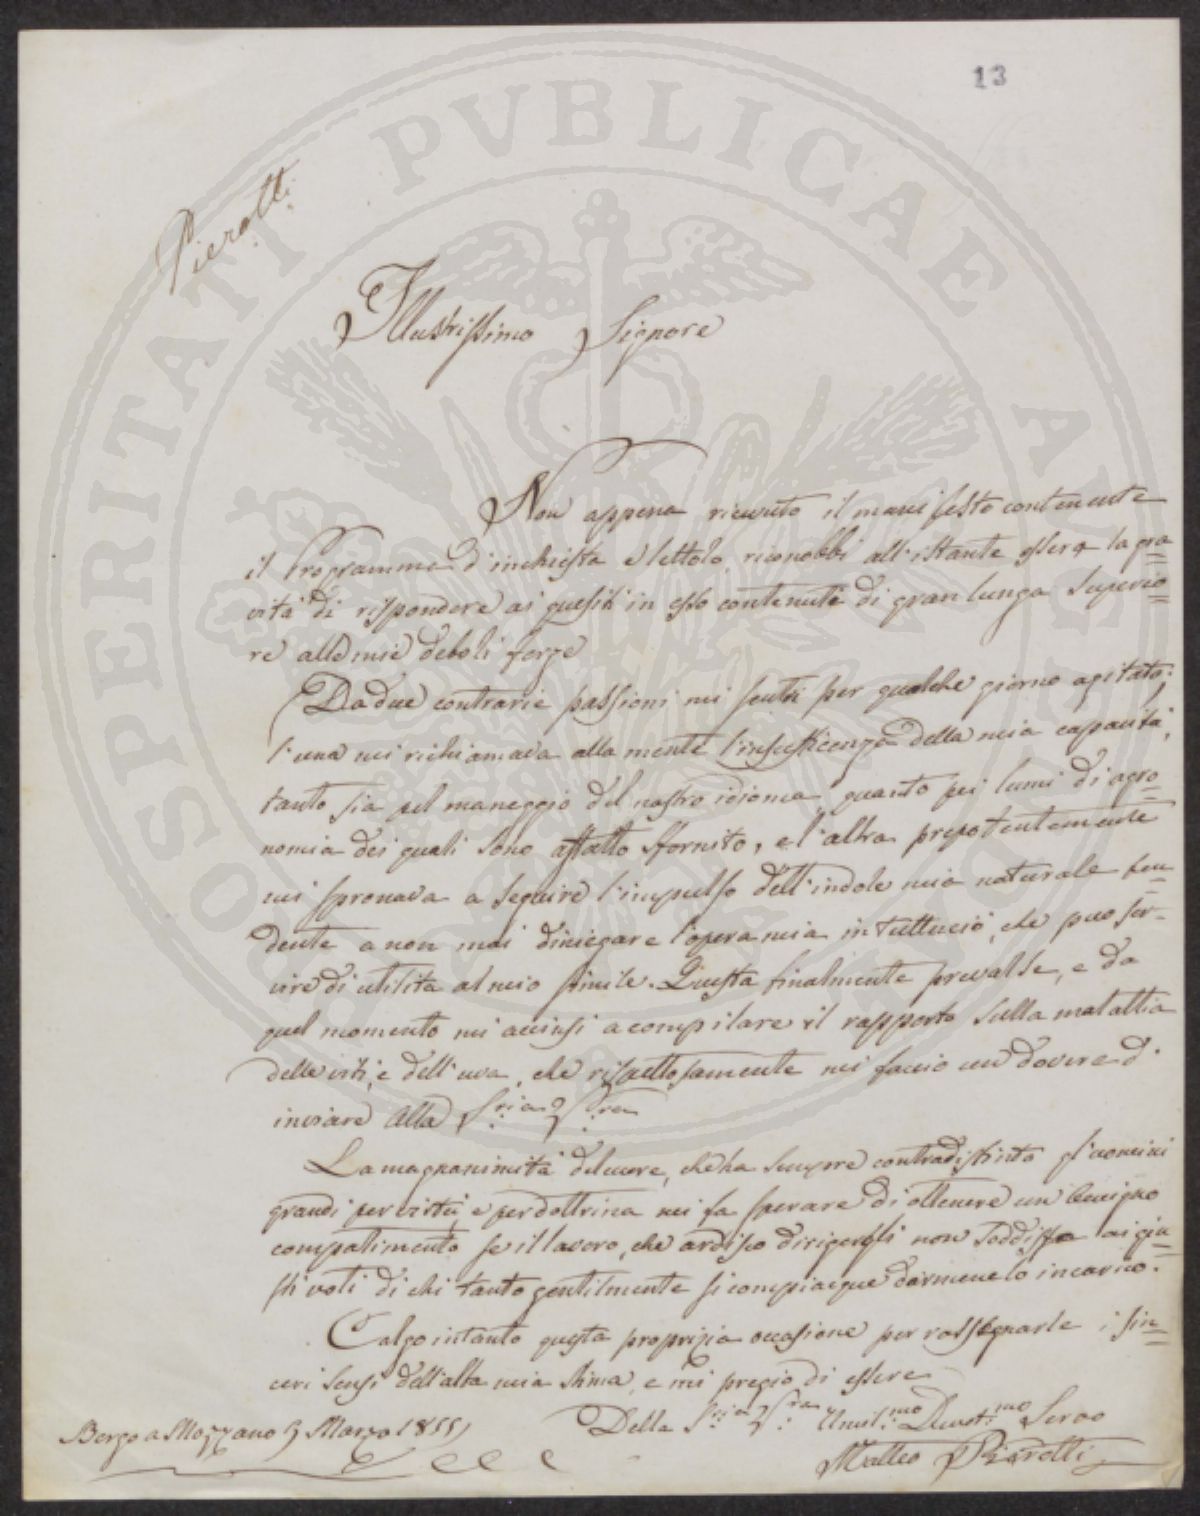 13
Pierotti
Illustrissimo Signore
Non appena ricevuto il manifesto contenente
il Programma d'inchiesta e lettolo, riconobbi all'istante essere la gra=
vità di rispondere ai quesiti in esso contenuti di gran lunga superio=
re alle mie deboli forze
Da due contrarie passioni mi sentii per qualche giorno agitato:
l'una mi richiamava alla mente l'insufficenza della mia capacità,
tanto sia pel maneggio del nostro idioma, quanto pei lumi di agro=
nomia dei quali sono affatto sfornito, e l'altra prepotentemente
mi spronava a seguire l'impulso dell'indole mia naturale ten=
dente a non mai diniegare l'opera mia in tuttuciò, che può ser-
vire di utilità al mio simile. Questa finalmente prevalse, e da
quel momento mi accinsi a compilare il rapporto sulla malattia
delle viti, e dell'uva, che rispettosamente mi faccio un dovere d'
inviare alla S.ria V.ra
La magnanimità del cuore, che ha sempre contradistinto gl'uomini
grandi per virtù, e per dottrina mi fa sperare di ottenere un benigno
compatimento se il lavoro, che ardisco dirigerli non soddisfa ai giu=
sti voti di chi tanto gentilmente si compiacque darmene lo incarico.
Colgo intanto questa propizia occasione per rassegnarle i sin=
ceri sensi dell'alta mia stima, e mi pregio di essere
Della S.ria V.ra Umil.mo Devot.mo Servo
Borgo a Mozzano 5 Marzo 1855
Matteo Pierotti
PROSPERITATI PUBLICAE AUGENDAE